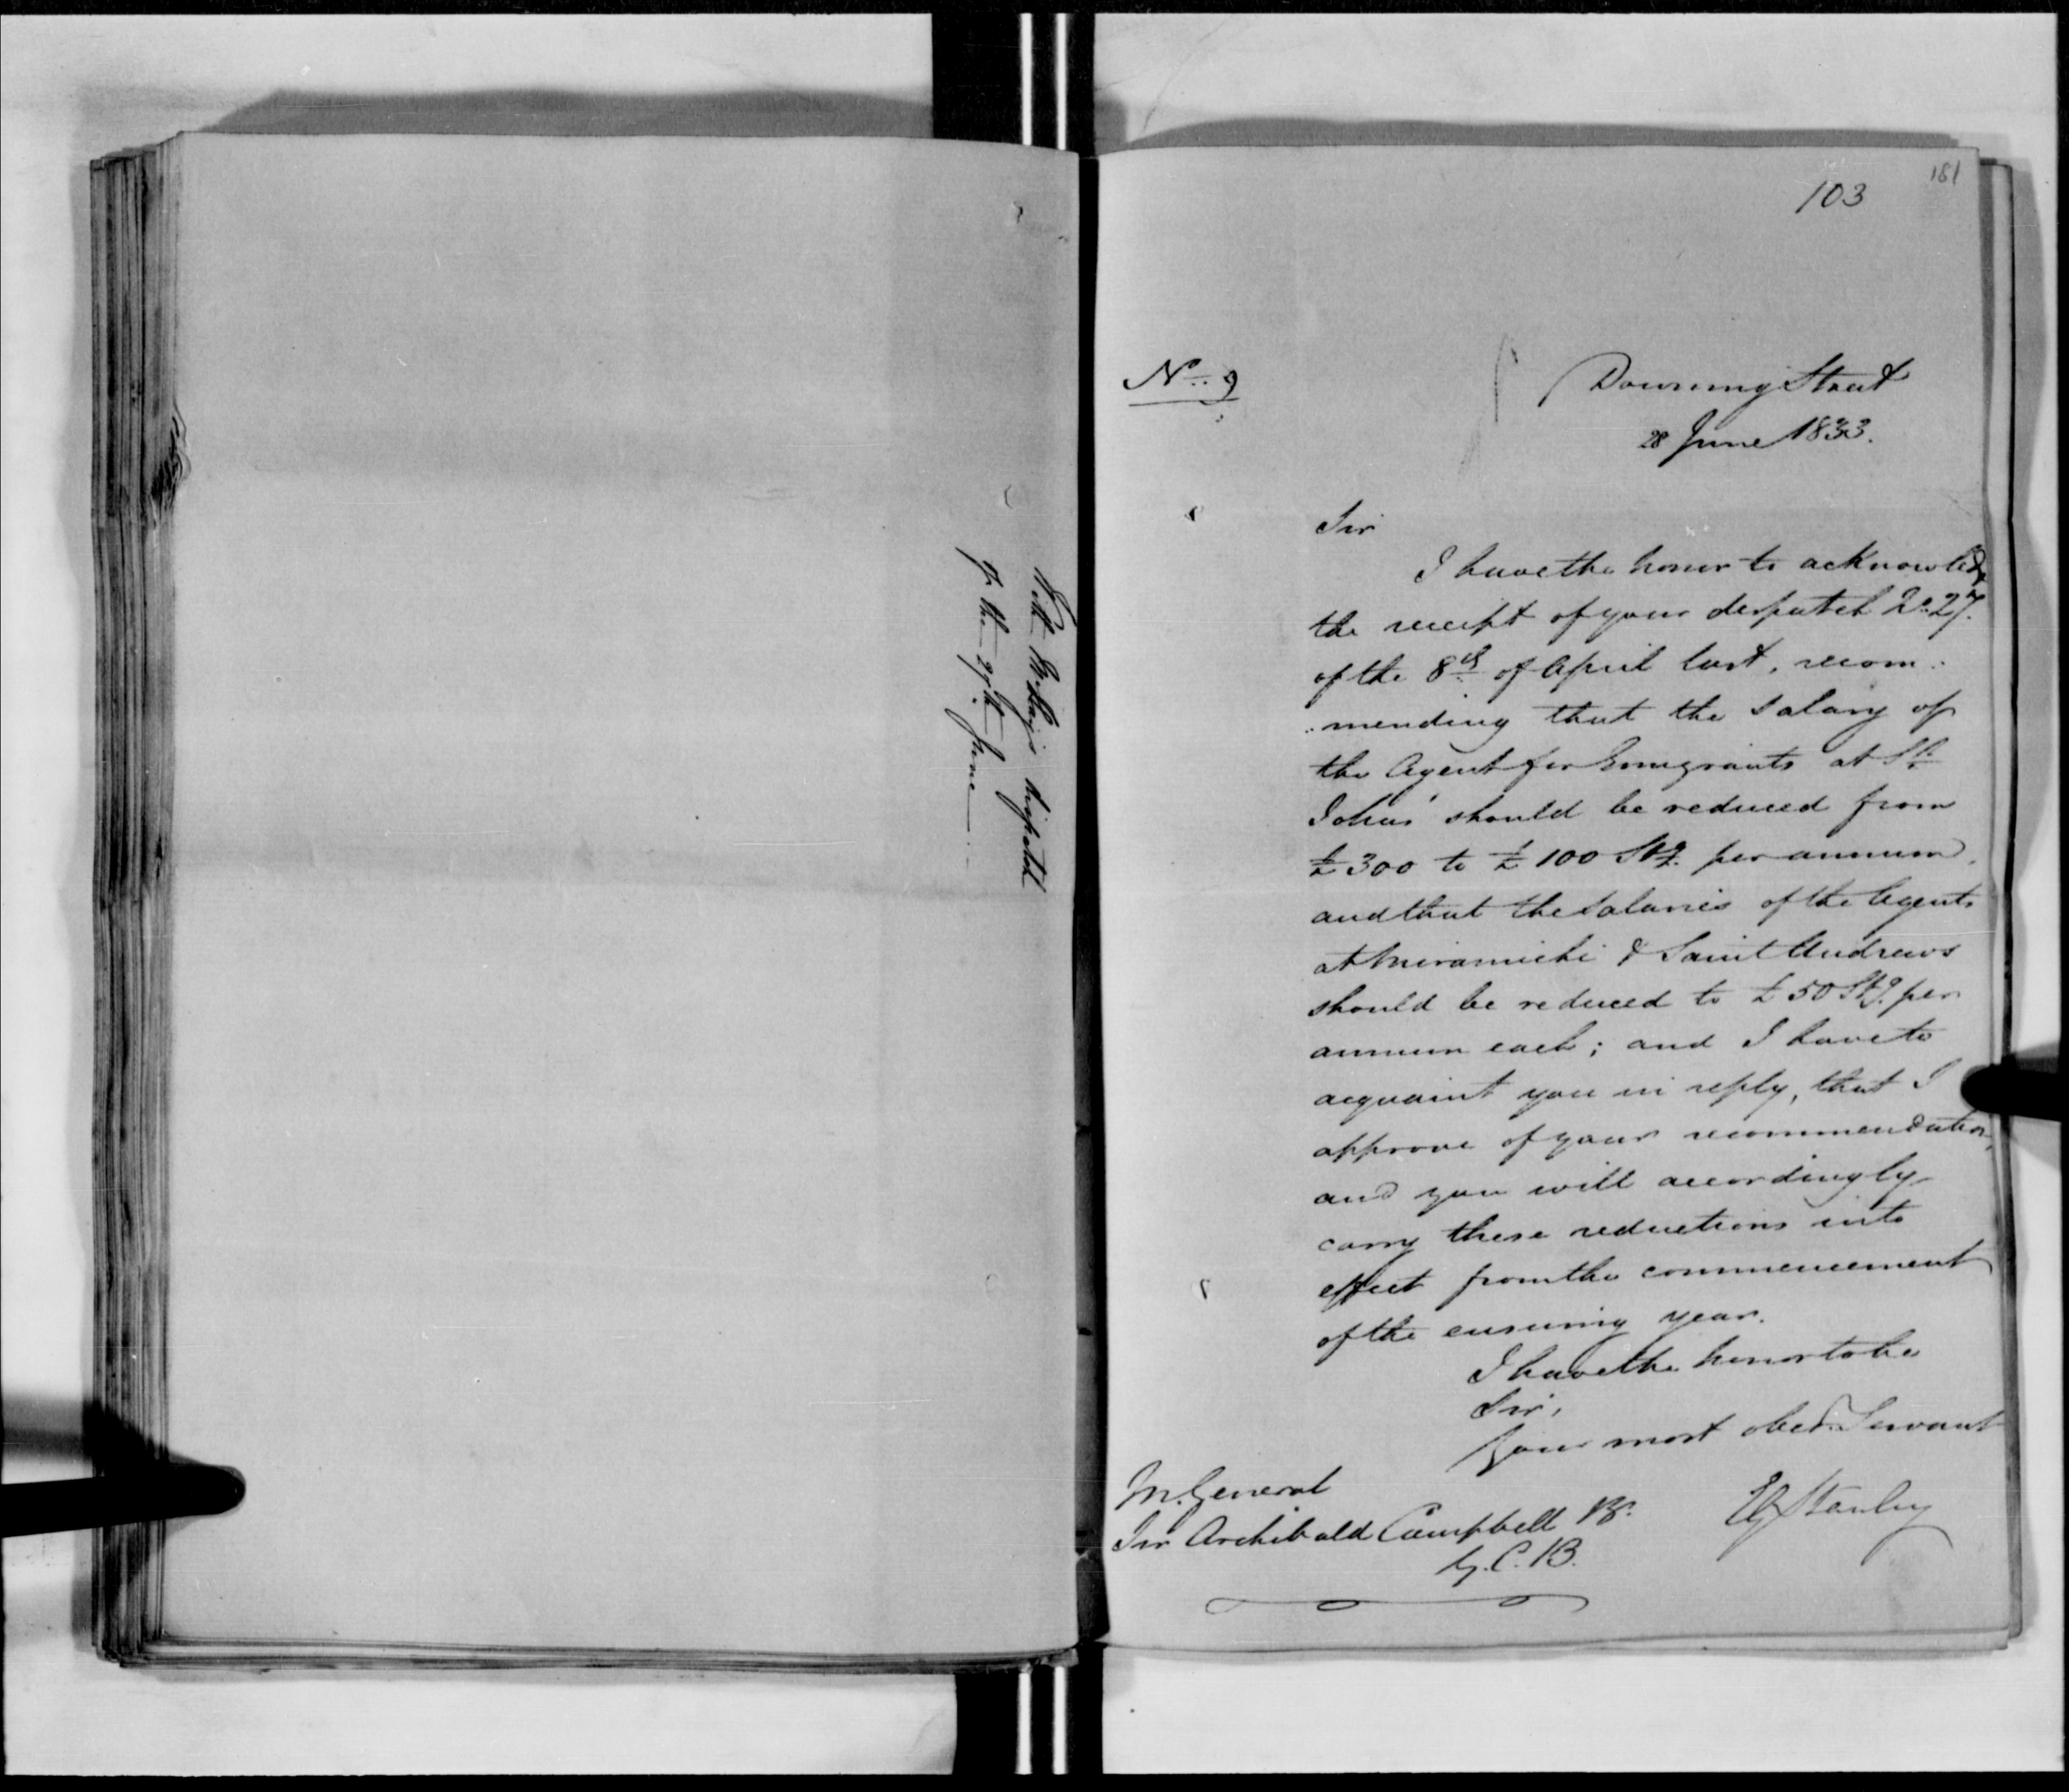 With Mr. Hay's dispatch
of the 27th June
103
181
No. 9
Downing Street
28 June 1833.
Sir
I have the honor to acknowledge
the receipt of your despatch No. 27.
of the 8th of April last, recom-
-mending that the salary of
the Agent for Emigrants at St.
John's should be reduced from
£300 to £100 Stg. per annum,
and that the Salaries of the Agents
at Miramichi & Saint Andrews
should be reduced to £50 Stg. per
annum each; and I have to
acquaint you in reply, that I
approve of your recommendation,
and you will accordingly
carry these reductions into
effect from the commencement
of the ensuing year.
I have the honor to be
Sir,
Your most obedt. Servant
EG Stanley
M. General
Sir Archibald Campbell Bt.
G.C.B.